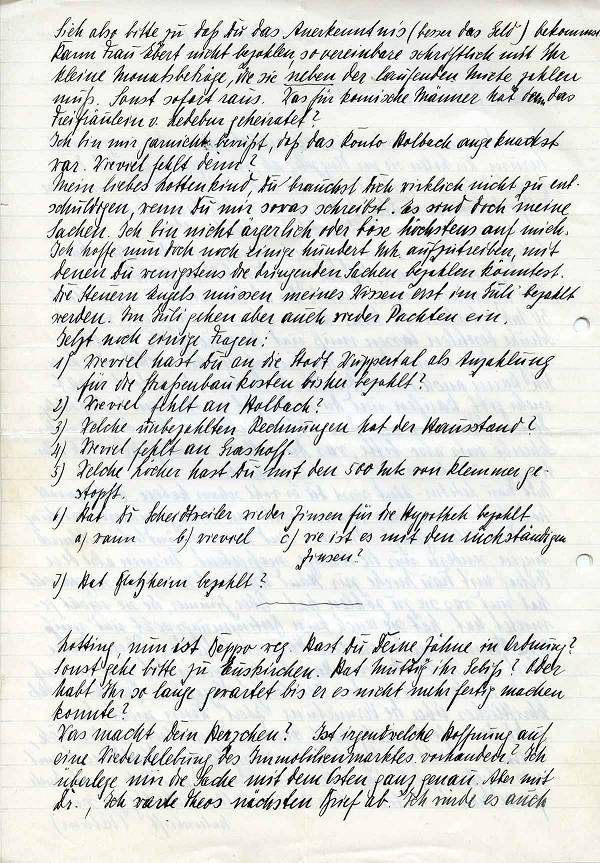 Sieh also bitte zu daß Du das Anerkenntnis (besser das Geld) bekommst
Kann Frau Ebert nicht bezahlen, so vereinbare schriftlich mit Ihr
kleine Monatsbeträge, die sie neben der laufenden Miete zahlen
muß. Sonst sofort raus. Was für komische Männer hat denn das
Freifräulein v. Ledebur geheiratet?
Ich bin mir garnicht bewußt, daß das Konto Holbach angeknackst
war. Wieviel fehlt denn?
Mein liebes Lottenkind, Du brauchst Dich wirklich nicht zu ent-
schuldigen, wenn Du mir sowas schreibst. Es sind doch meine
Sachen. Ich bin nicht ärgerlich oder böse höchstens auf mich.
Ich hoffe nun doch noch einige hundert Mk. aufzutreiben, mit
denen Du wenigstens die dringenden Sachen bezahlen könntest.
Die Steuern Engels müssen meines Wissens erst im Juli bezahlt
werden. Im Juli gehen aber auch wieder Pachten ein.
Jetzt noch einige Fragen:
1) Wieviel hast Du an die Stadt Wuppertal als Anzahlung
für die Straßenbaukosten bisher bezahlt?
2) Wieviel fehlt an Holbach?
3) Welche unbezahlten Rechnungen hat der Hausstand?
4) Wieviel fehlt an Grashoff.
5) Welche Löcher hast Du mit den 500 Mk von Klemmer ge-
stopft.
6) Hat Dr Scherdtweiler wieder Zinsen für die Hypothek bezahlt
a) wann b) wieviel c) wie ist es mit den rückständigen
Zinsen?
7) Hat Flatzheim bezahlt?
Lotting, nun ist Peppo weg. Hast Du Deine Zähne in Ordnung?
Sonst gehe bitte zu Euskirchen. Hat Mutting ihr Gebiß? Oder
habt Ihr so lange gewartet bis er es nicht mehr fertig machen
konnte?
Was macht Dein Herzchen? Ist irgendwelche Hoffnung auf
eine Wiederbelebung des Immobilienmarktes vorhanden? Ich
überlege mir die Sache mit dem Osten ganz genau. Aber mit
Dr., Ich warte Theos nächsten Brief ab. Ich würde es auch